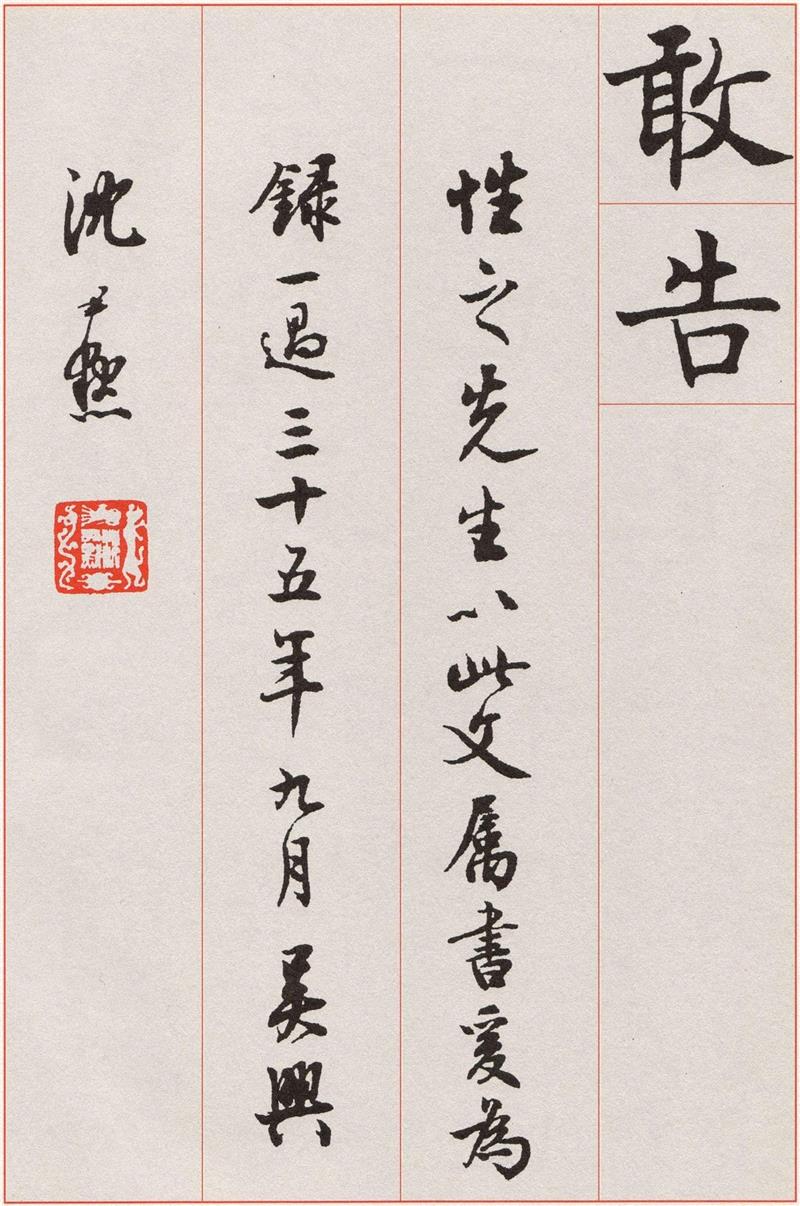 敢告
性之先生以此文属書爰為
録一過三十五年九月吳興
沈尹默